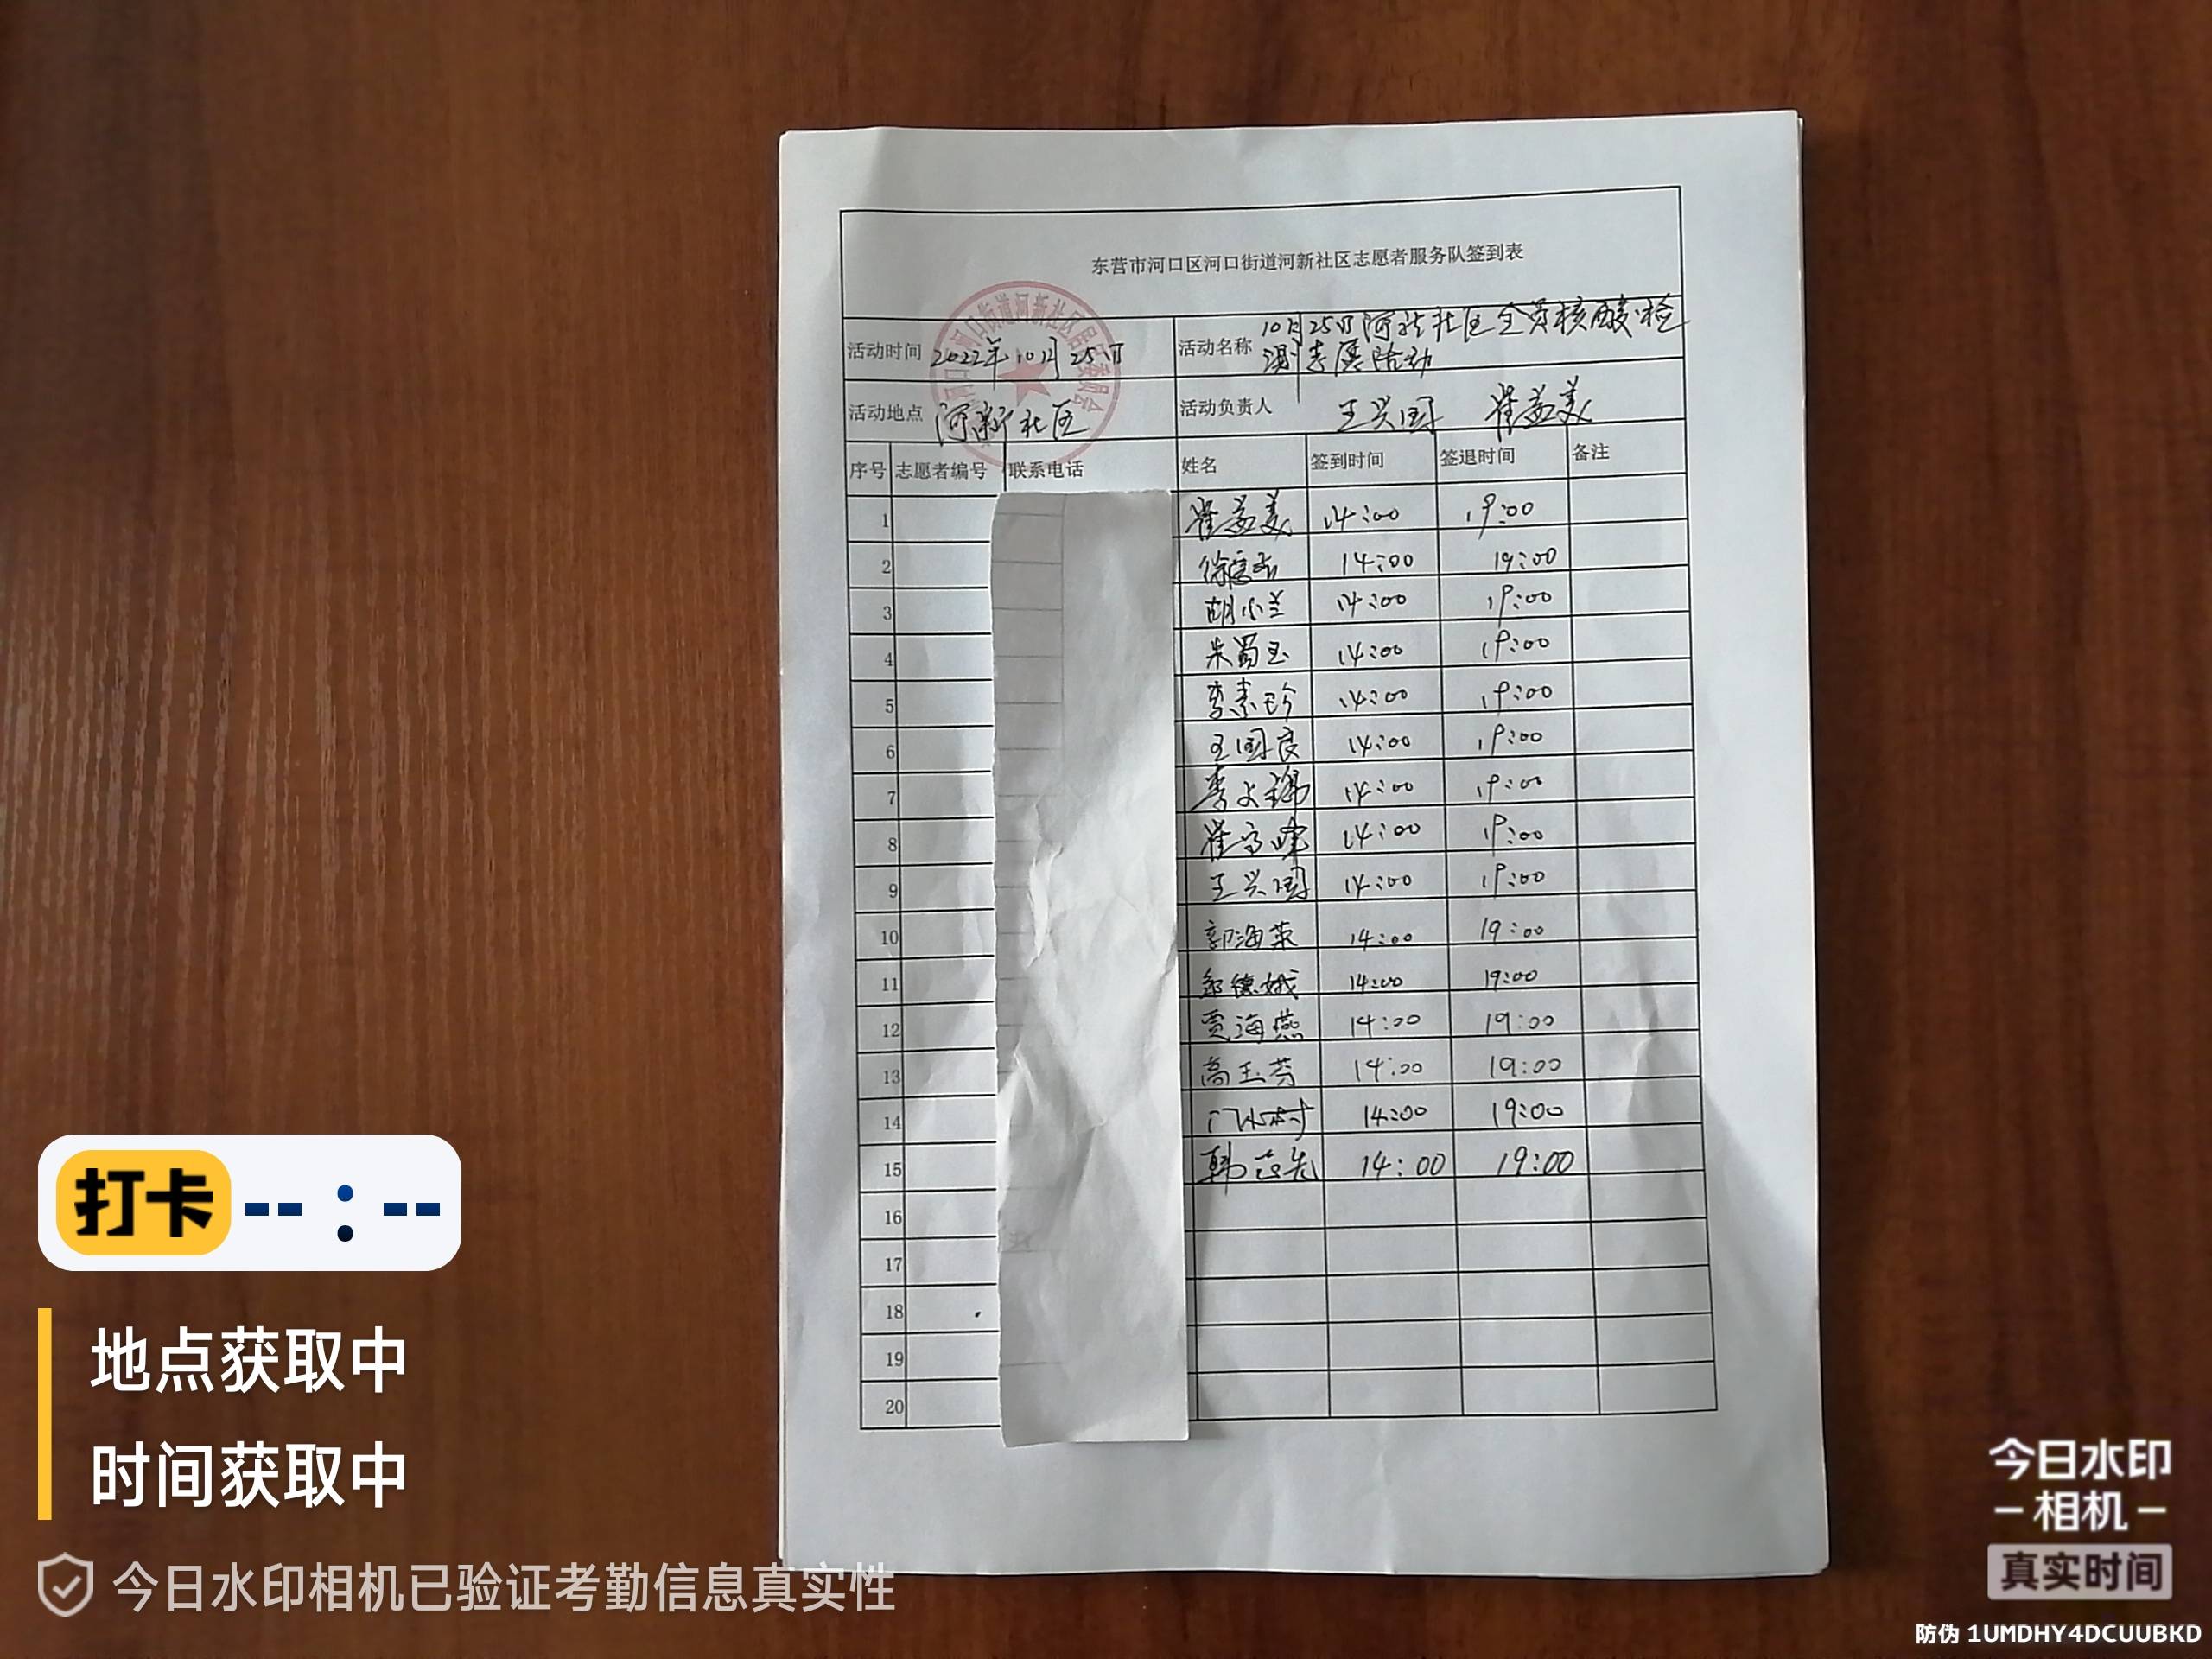 东营市河口区河口街道河新社区志愿者服务队签到表
活动时间 2022年10月25日 活动名称 10月25日河新社区全员核酸检
测志愿活动
活动地点 河新社区 活动负责人 王兴国 崔益美
序号 志愿者编号 联系电话 姓名 签到时间 签退时间 备注
1 崔益美 14:00 19:00
2 14:00 19:00
3 胡小兰 14:00 19:00
4 朱蜀玉 14:00 19:00
5 李素珍 14:00 19:00
6 王国良 14:00 19:00
7 李文锦 14:00 19:00
8 14:00 19:00
9 王兴国 14:00 19:00
10 郭海荣 14:00 19:00
11 14:00 19:00
12 贾海燕 14:00 19:00
13 高玉芬 14:00 19:00
14 14:00 19:00
15 14:00 19:00
16
17
18
19
20
打卡 --:--
地点获取中
时间获取中
今日水印相机已验证考勤信息真实性
今日水印
-相机-
真实时间
防伪 1UMDHY4DCUUBKD